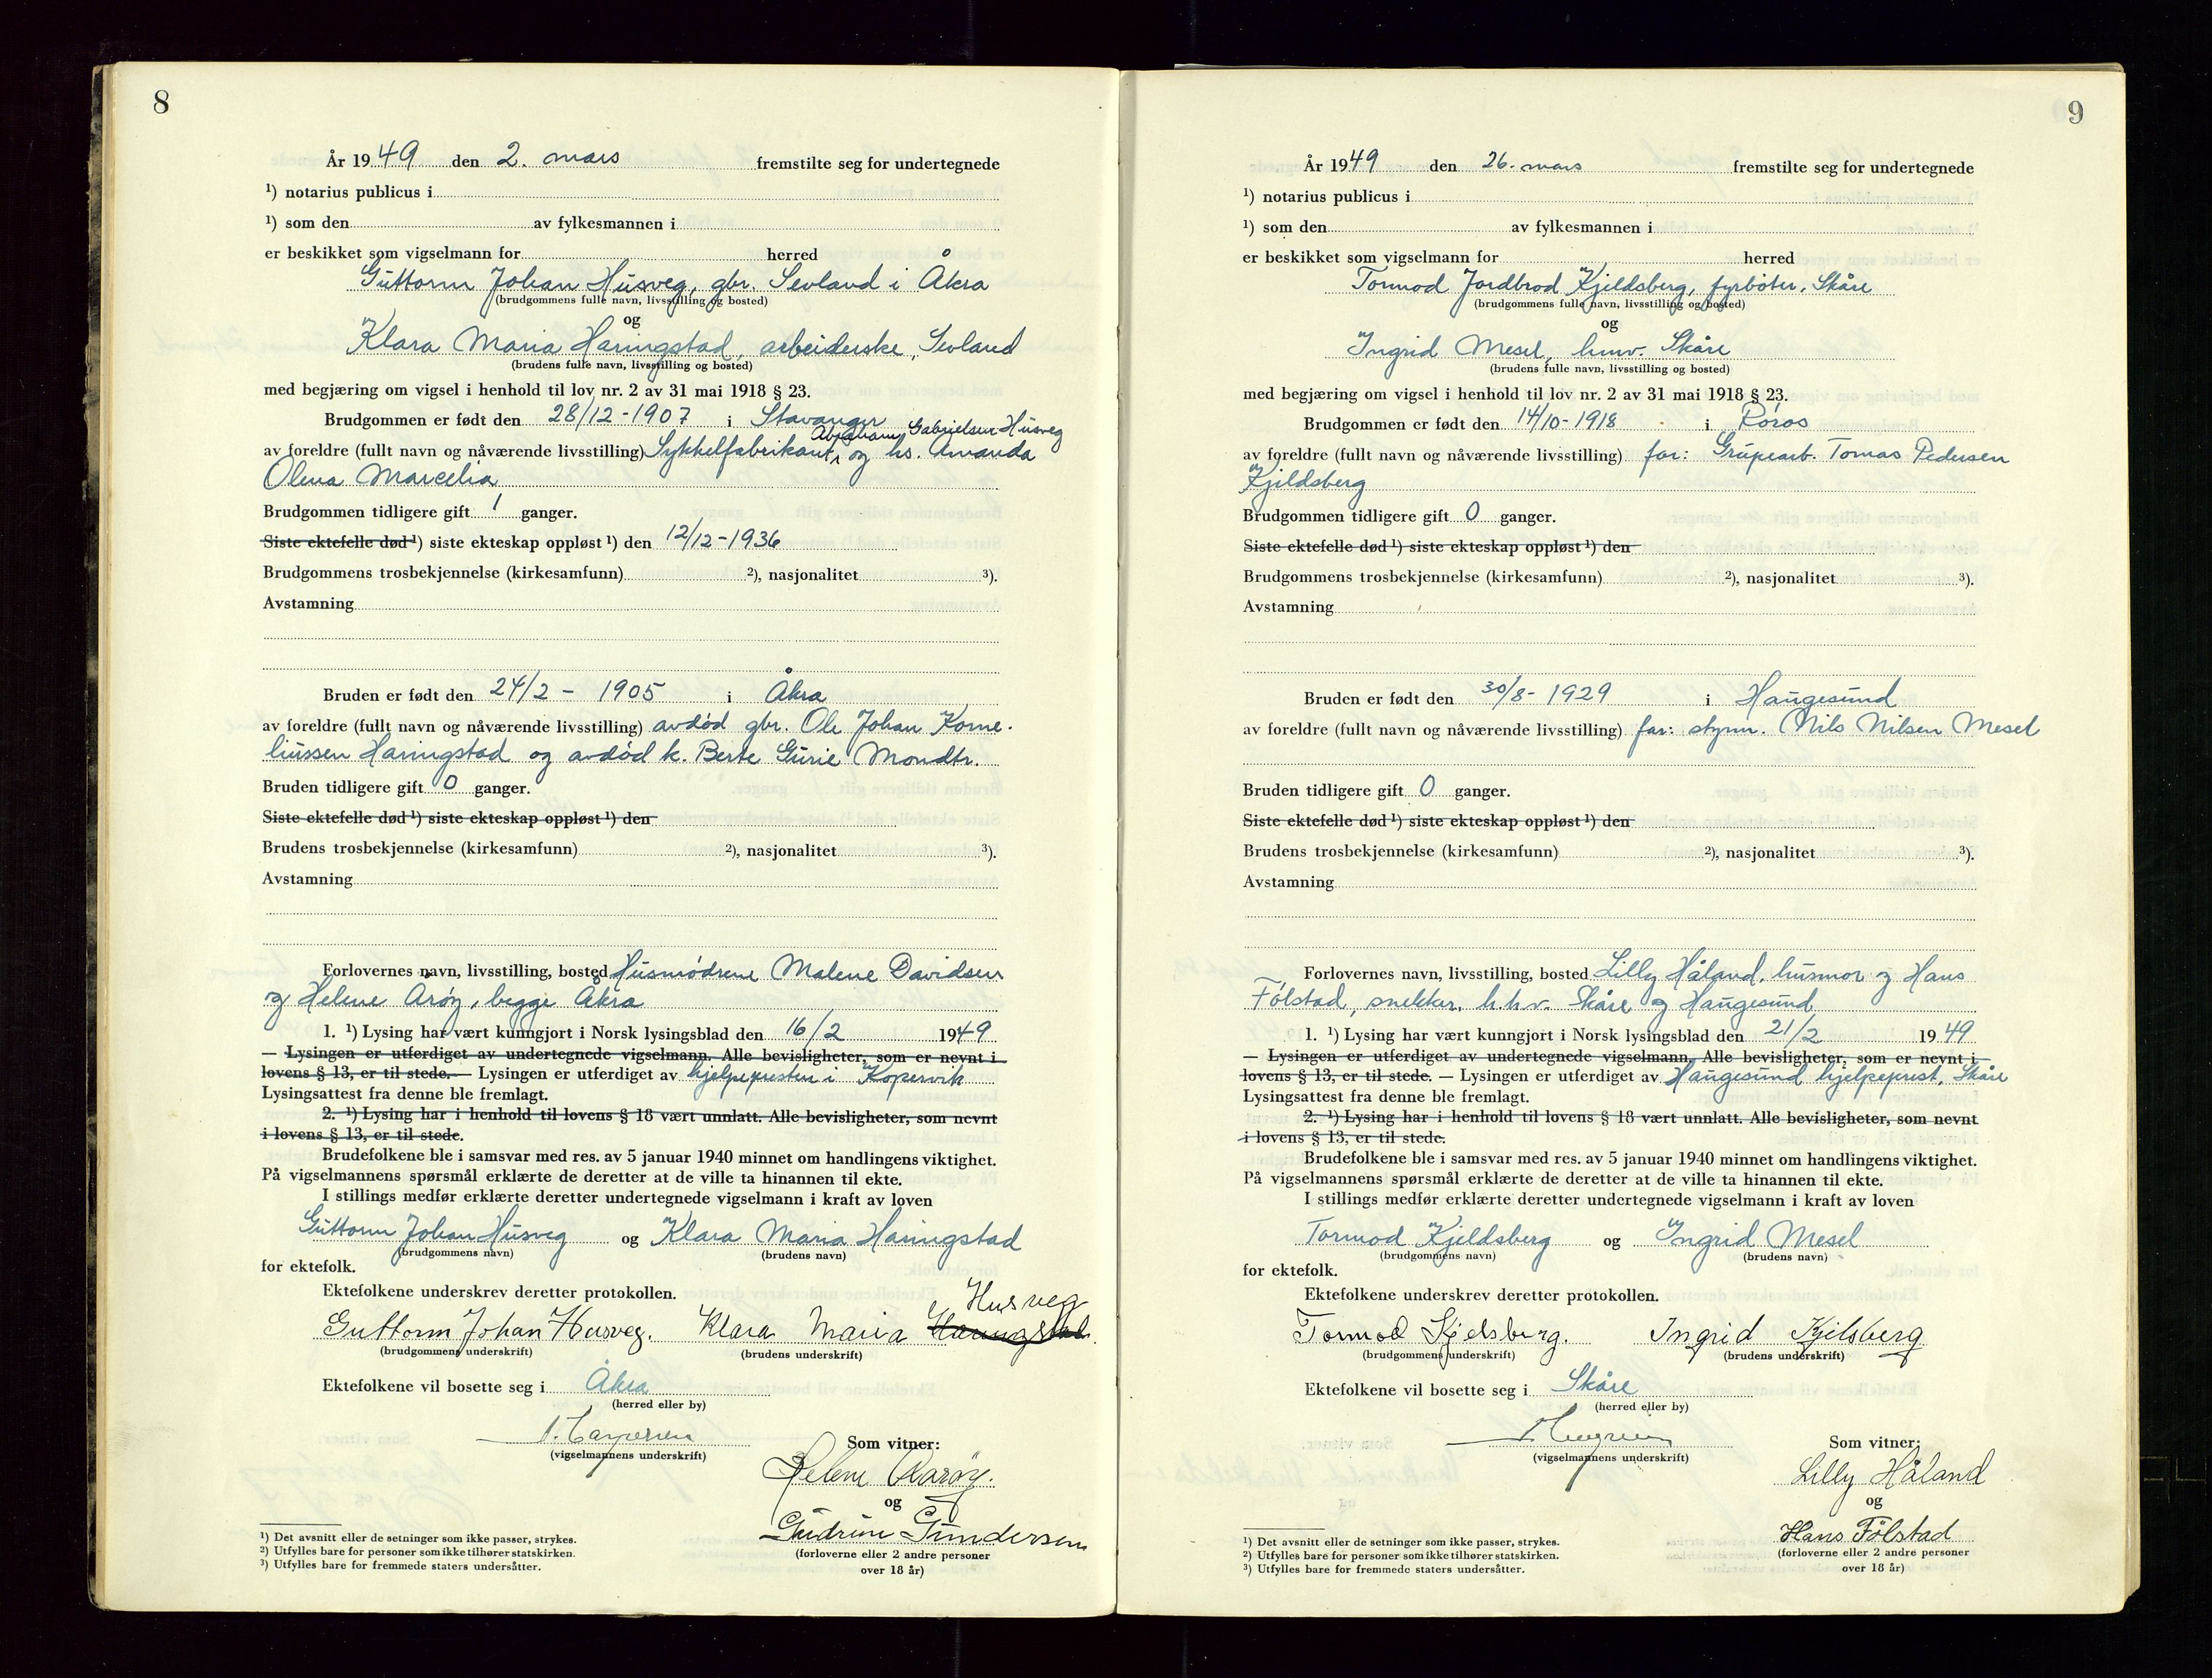 8
År 1949 den 2. mars fremstilte seg for undertegnede
¹) notarius publicus i
¹) som den av fylkesmannen i
er beskikket som vigselmann for herred
Guttorm Johan Husveg, gbr. Sevland i Åkra
(brudgommens fulle navn, livsstilling og bosted)
og
Klara Maria Haringstad, arbeiderske, Sevland
(brudens fulle navn, livsstilling og bosted)
med begjæring om vigsel i henhold til lov nr. 2 av 31 mai 1918 § 23.
Brudgommen er født den 28/12-1907 i Stavanger
Abraham Gabrielsen Husveg
av foreldre (fullt navn og nåværende livsstilling) Sykkelfabrikant, og hs. Amanda
Olena Marcelia
Brudgommen tidligere gift 1 ganger.
Siste ektefelle død ¹) siste ekteskap oppløst ¹) den 12/12-1936
Brudgommens trosbekjennelse (kirkesamfunn) ²), nasjonalitet ³).
Avstamning
Bruden er født den 24/2 - 1905 i Åkra
av foreldre (fullt navn og nåværende livsstilling) avdød gbr. Ole Johan Korne-
liussen Haringstad og avdød k. Berte Gurie Mondtr.
Bruden tidligere gift 0 ganger.
Siste ektefelle død ¹) siste ekteskap oppløst ¹) den
Brudens trosbekjennelse (kirkesamfunn) ²), nasjonalitet ³).
Avstamning
Forlovernes navn, livsstilling, bosted Husmødrene Malene Davidsen
og Helene Arøy, begge Åkra
1. ¹) Lysing har vært kunngjort i Norsk lysingsblad den 16/2 1949
— Lysingen er utferdiget av undertegnede vigselmann. Alle bevisligheter, som er nevnt i
lovens § 13, er til stede. — Lysingen er utferdiget av hjelpepresten i Kopervik
Lysingsattest fra denne ble fremlagt.
2. ¹) Lysing har i henhold til lovens § 18 vært unnlatt. Alle bevisligheter, som nevnt
i lovens § 13, er til stede.
Brudefolkene ble i samsvar med res. av 5 januar 1940 minnet om handlingens viktighet.
På vigselmannens spørsmål erklærte de deretter at de ville ta hinannen til ekte.
I stillings medfør erklærte deretter undertegnede vigselmann i kraft av loven
Guttorm Johan Husveg og Klara Maria Haringstad
(brudgommens navn) (brudens navn)
for ektefolk.
Ektefolkene underskrev deretter protokollen.
Husveg
Guttorm Johan Husveg. Klara Maria Haringstad.
(brudgommens underskrift) (brudens underskrift)
Ektefolkene vil bosette seg i Åkra
(herred eller by)
(vigselmannens underskrift)
Som vitner:
Helene Aarøy.
og
Gudrun Gundersen
(forloverne eller 2 andre personer
over 18 år)
¹) Det avsnitt eller de setninger som ikke passer, strykes.
²) Utfylles bare for personer som ikke tilhører statskirken.
³) Utfylles bare for fremmede staters undersåtter.
9
År 1949 den 26. mars fremstilte seg for undertegnede
¹) notarius publicus i
¹) som den av fylkesmannen i
er beskikket som vigselmann for herred
Tormod Jordbrod Kjeldsberg, fyrbøter, Skåre
(brudgommens fulle navn, livsstilling og bosted)
og
Ingrid Mesel, hmv. Skåre
(brudens fulle navn, livsstilling og bosted)
med begjæring om vigsel i henhold til lov nr. 2 av 31 mai 1918 § 23.
Brudgommen er født den 14/10-1918 i Røros
av foreldre (fullt navn og nåværende livsstilling) far: Grupearb. Tomas Pedersen
Kjeldsberg
Brudgommen tidligere gift 0 ganger.
Siste ektefelle død ¹) siste ekteskap oppløst ¹) den
Brudgommens trosbekjennelse (kirkesamfunn) ²), nasjonalitet ³).
Avstamning
Bruden er født den 30/8-1929 i Haugesund
av foreldre (fullt navn og nåværende livsstilling) far: styrm. Nils Nilsen Mesel
Bruden tidligere gift 0 ganger.
Siste ektefelle død ¹) siste ekteskap oppløst ¹) den
Brudens trosbekjennelse (kirkesamfunn) ²), nasjonalitet ³).
Avstamning
Forlovernes navn, livsstilling, bosted Lilly Håland, husmor og Hans
Følstad, snekker, h.h.v. Skåre og Haugesund
1. ¹) Lysing har vært kunngjort i Norsk lysingsblad den 21/2 1949
— Lysingen er utferdiget av undertegnede vigselmann. Alle bevisligheter, som er nevnt i
lovens § 13, er til stede. — Lysingen er utferdiget av Haugesund hjelpeprest, Skåre
Lysingsattest fra denne ble fremlagt.
2. ¹) Lysing har i henhold til lovens § 18 vært unnlatt. Alle bevisligheter, som nevnt
i lovens § 13, er til stede.
Brudefolkene ble i samsvar med res. av 5 januar 1940 minnet om handlingens viktighet.
På vigselmannens spørsmål erklærte de deretter at de ville ta hinannen til ekte.
I stillings medfør erklærte deretter undertegnede vigselmann i kraft av loven
Tormod Kjeldsberg og Ingrid Mesel
(brudgommens navn) (brudens navn)
for ektefolk.
Ektefolkene underskrev deretter protokollen.
Tormod Kjelsberg. Ingrid Kjelsberg
(brudgommens underskrift) (brudens underskrift)
Ektefolkene vil bosette seg i Skåre
(herred eller by)
(vigselmannens underskrift)
Som vitner:
Lilly Håland
og
Hans Følstad
(forloverne eller 2 andre personer
over 18 år)
¹) Det avsnitt eller de setninger som ikke passer, strykes.
²) Utfylles bare for personer som ikke tilhører statskirken.
³) Utfylles bare for fremmede staters undersåtter.